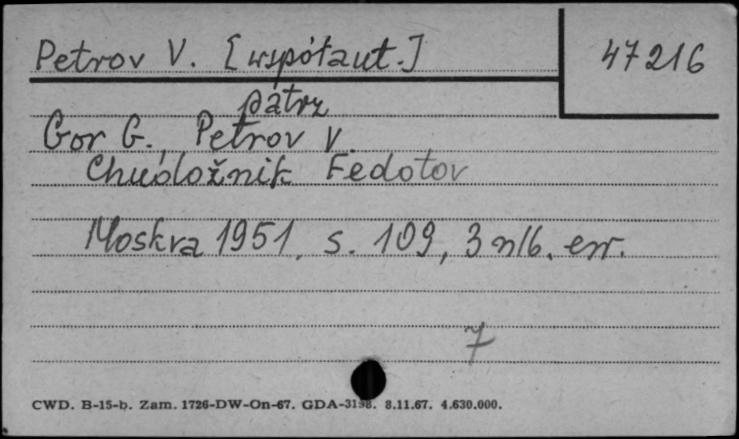 Petrov V. [współaut.]
47216
patrz
Gor G., Petrov V.
Chudožnik Fedotov
Moskva 1951, s. 109, 3 nlb. err.
7
CWD. B-15-b. Zam. 1726-DW-On-67. GDA-3198. 8.11.67. 4.630.000.